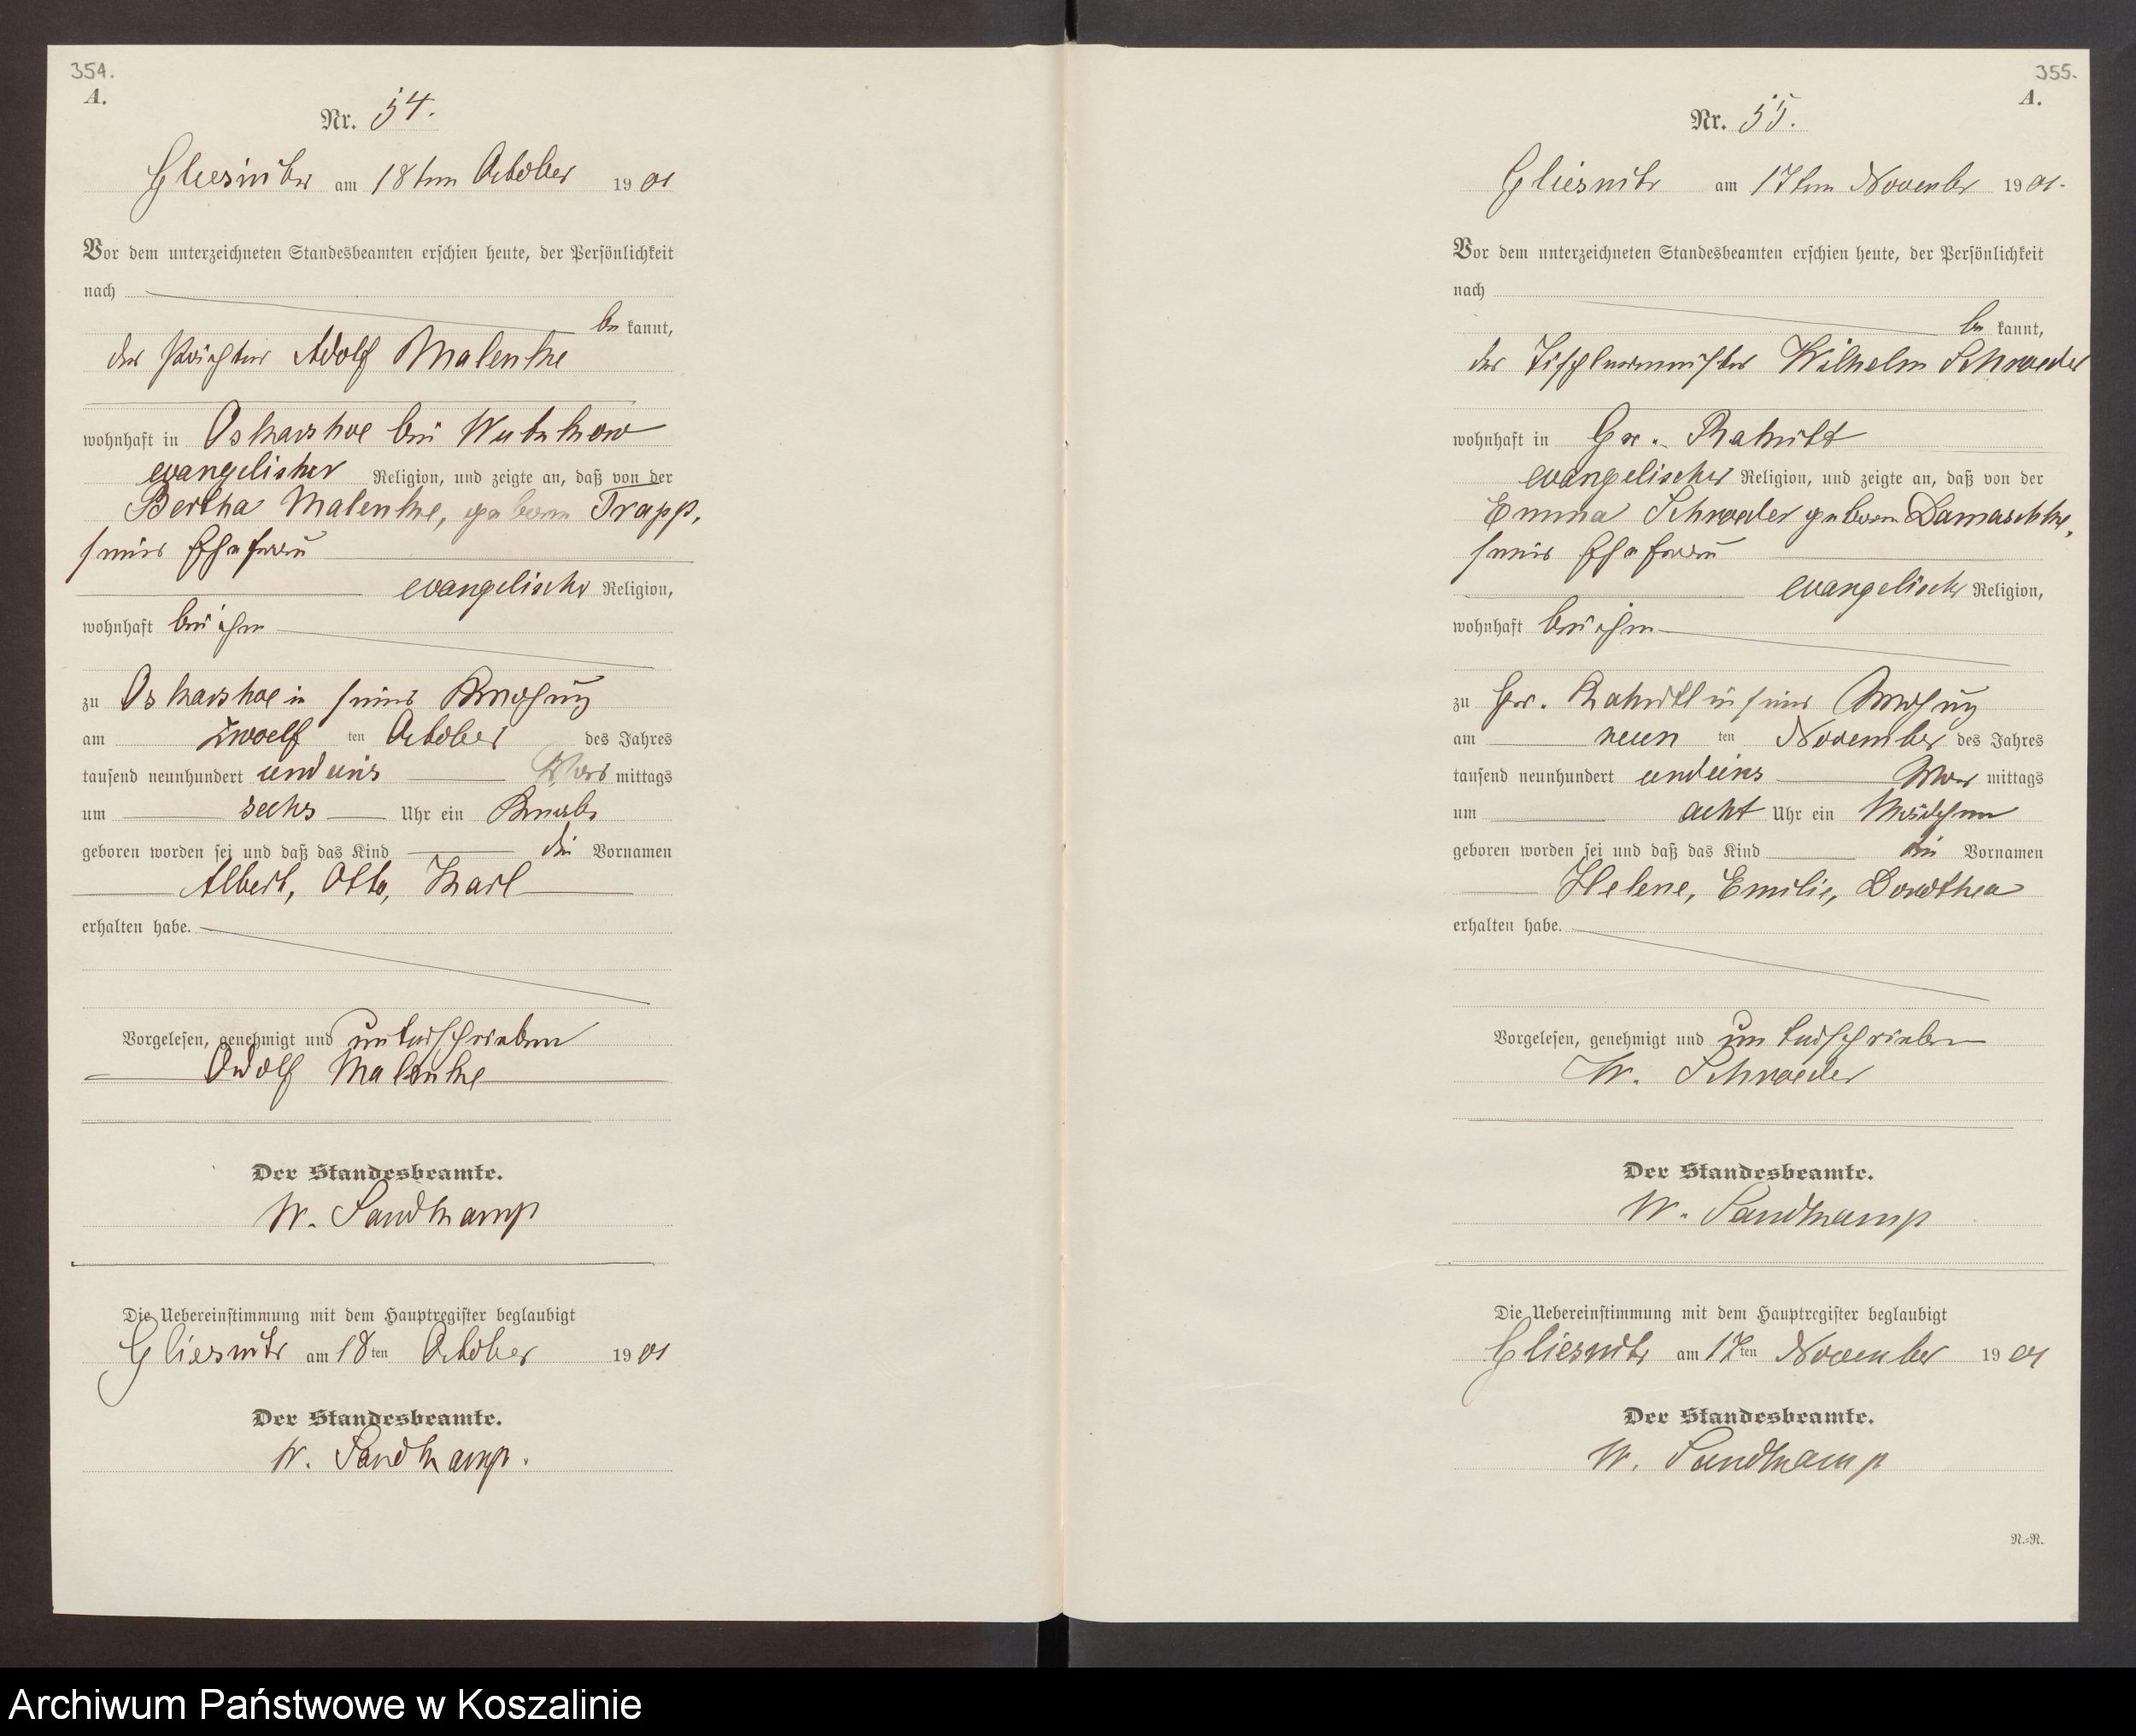 354.
A.
Nr. 54.
Gliesnitz am 18ten October 1901
Vor dem unterzeichneten Standesbeamten erschien heute, der Persönlichkeit
nach
be kannt,
der Pächter Adolf Malenke
wohnhaft in Oskarshoe bei Wutzkow
evangelischer Religion, und zeigte an, daß von der
Bertha Malenke, geboren Trapp,
seiner Ehefrau
evangelischer Religion,
wohnhaft bei ihm
zu Oskarshoe in seiner Behausung
am zwoelf ten October des Jahres
tausend neunhundert undeins Vor mittags
um sechs Uhr ein Knabe
geboren worden sei und daß das Kind die Vornamen
Albert, Otto, Karl
erhalten habe.
Vorgelesen, genehmigt und unterschrieben
Adolf Malenke
Der Standesbeamte.
W. Sandkamp
Die Uebereinstimmung mit dem Hauptregister beglaubigt
Gliesnitz am 18ten October 1901
Der Standesbeamte.
W. Sandkamp.
355.
A.
Nr. 55.
Gliesnitz am 17ten November 1901.
Vor dem unterzeichneten Standesbeamten erschien heute, der Persönlichkeit
nach
be kannt,
der Tischlermeister Wilhelm Schroeder
wohnhaft in Gr. Rakitt
evangelischer Religion, und zeigte an, daß von der
Emma Schroeder geboren Damaschke,
seiner Ehefrau
evangelischer Religion,
wohnhaft bei ihm
zu Gr. Rakitt in seiner Behausung
am neun ten November des Jahres
tausend neunhundert undeins Vor mittags
um acht Uhr ein Mädchen
geboren worden sei und daß das Kind die Vornamen
Helene, Emilie, Dorothea
erhalten habe.
Vorgelesen, genehmigt und unterschrieben
W. Schroeder
Der Standesbeamte.
W. Sandkamp
Die Uebereinstimmung mit dem Hauptregister beglaubigt
Gliesnitz am 17ten November 1901
Der Standesbeamte.
W. Sandkamp
N.-N.
Archiwum Państwowe w Koszalinie